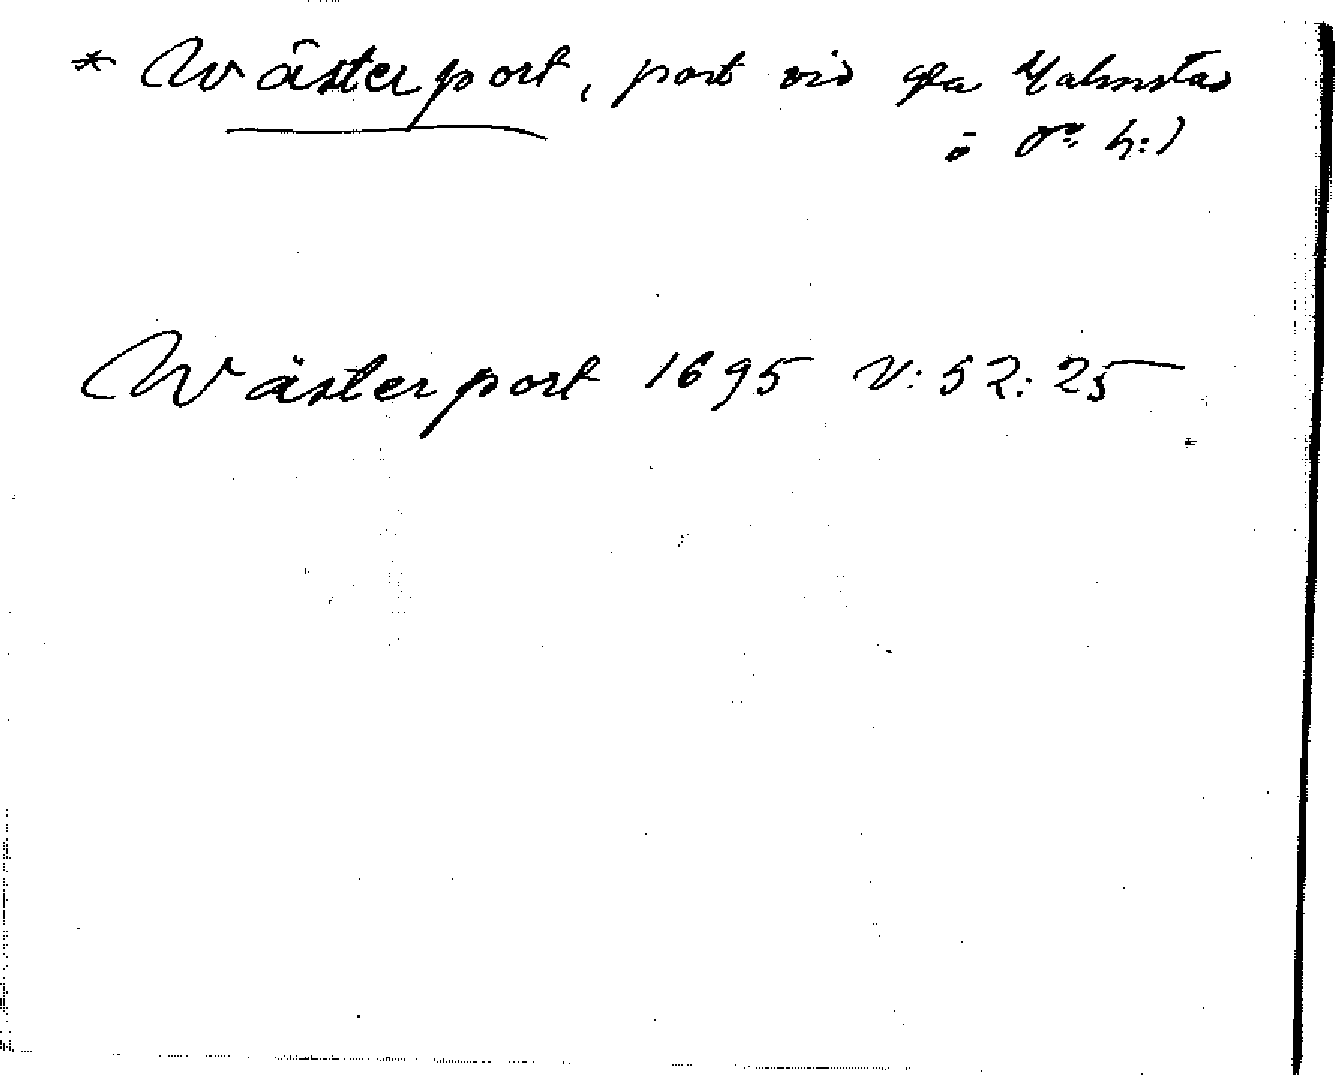 * Wästerport, port vid gla Halmstad
i Ön. h:)
Wästerport 1695 V: 52: 25